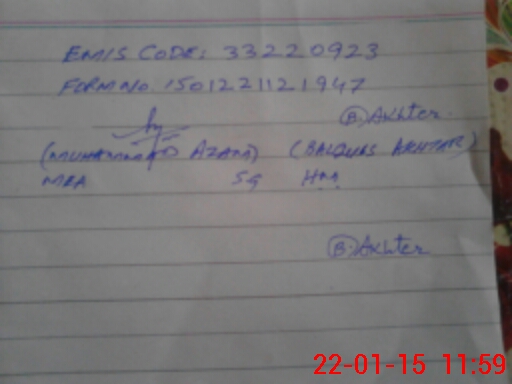 EMIS CODE: 33220923
FORM NO. 1501221121947
(B) Akhter
(MUHAMMAD AZAM) (BALQUES AKHTAR)
MEA SG HM
(B) Akhter
22-01-15 11:59